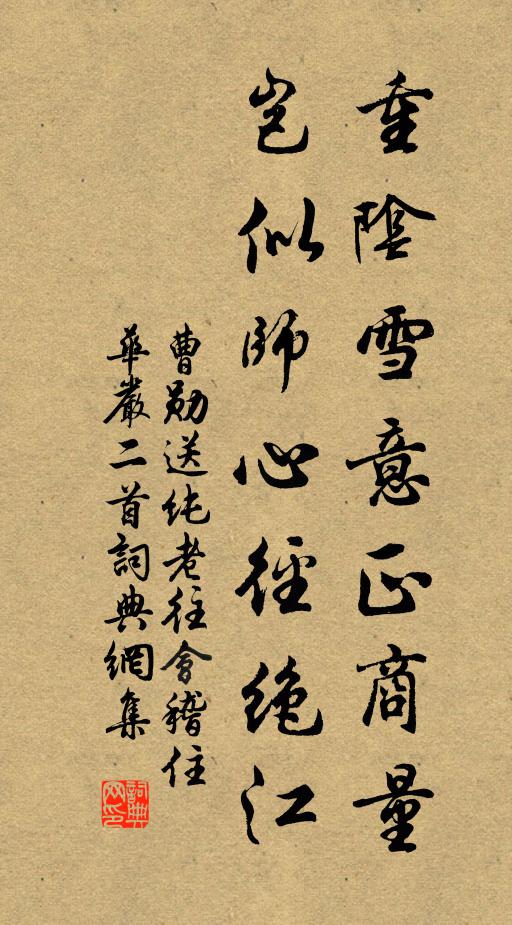 重陰雪意正商量
豈似師心徑絶江
曹勛送純老往會稽住
華嚴二首詞典網集
詞典網印